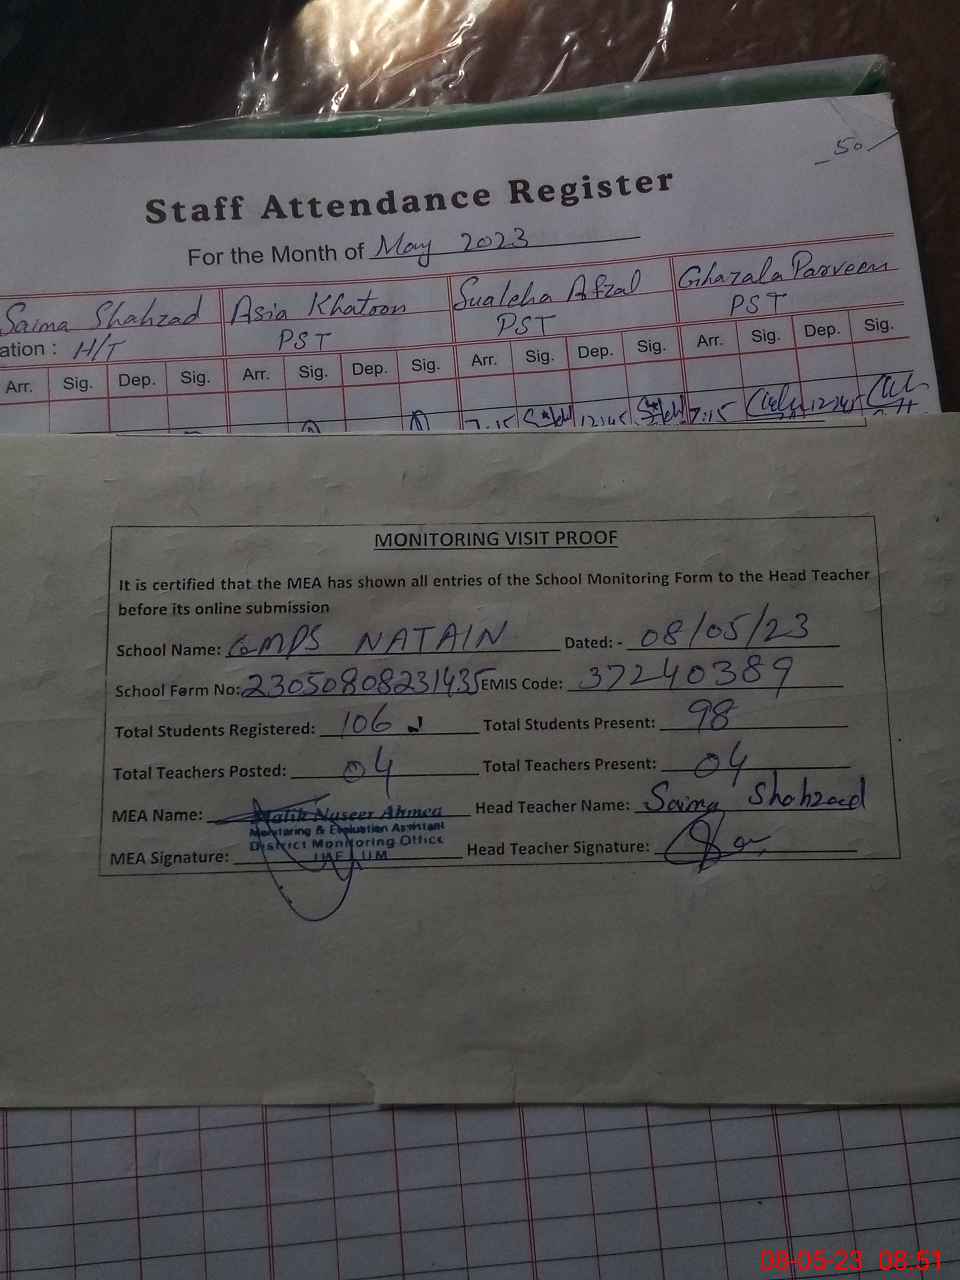 50
Staff Attendance Register
For the Month of May 2023
Saima Shahzad Asia Khatoon Sualeha Afzal Ghazala Parveen
ation : H/T PST PST PST
Arr. Sig. Dep. Sig. Arr. Sig. Dep. Sig. Arr. Sig. Dep. Sig. Arr. Sig. Dep. Sig.
7.15 12:45 7:15 12:45
MONITORING VISIT PROOF
It is certified that the MEA has shown all entries of the School Monitoring Form to the Head Teacher
before its online submission
School Name: GMPS NATAIN Dated: - 08/05/23
School Form No: 23050808231435 EMIS Code: 37240389
Total Students Registered: 106 Total Students Present: 98
Total Teachers Posted: 04 Total Teachers Present: 04
MEA Name: Malik Naseer Ahmed Head Teacher Name: Saima Shahzad
Monitoring & Evaluation Assistant
District Monitoring Office
MEA Signature: Head Teacher Signature:
08-05-23 08:51